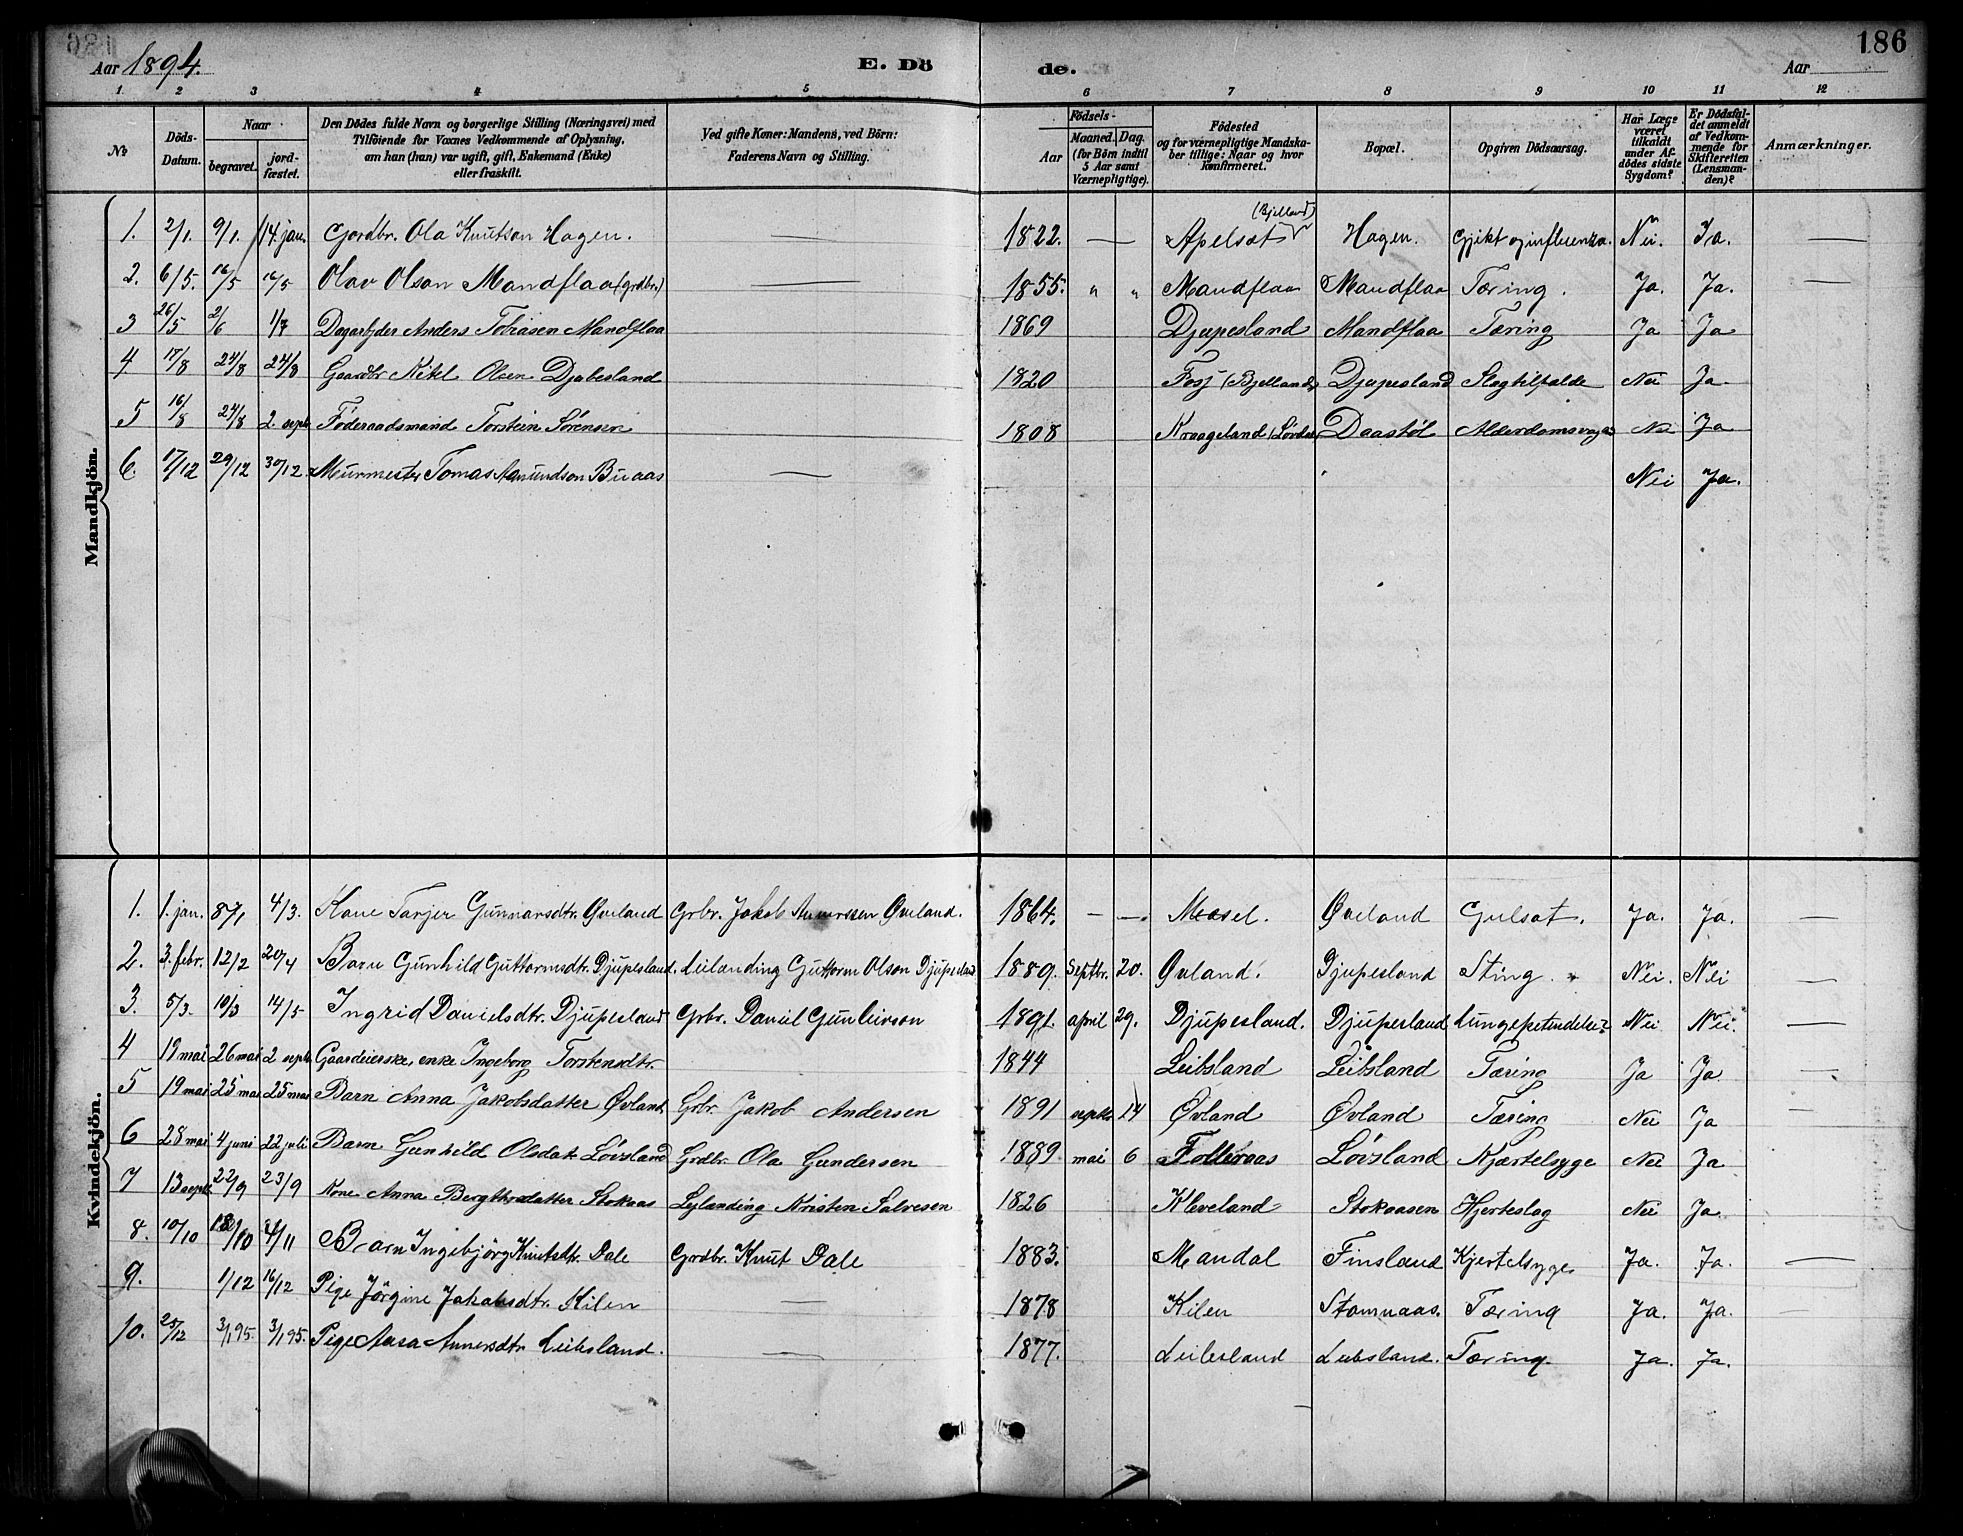 186
Aar 1894.
E. Dö de.
Aar
1 2 3 4 5 6 7 8 9 10 11 12
№
Döds-Datum.
Naar begravet. jordfæstet.
Den Dödes fulde Navn og borgerlige Stilling (Næringsvei) med Tilföiende for Voxnes Vedkommende af Oplysning, om han (hun) var ugift, gift, Enkemand (Enke) eller fraskilt.
Ved gifte Koner: Mandens, ved Börn: Faderens Navn og Stilling.
Födsels- Aar Maaned. Dag. (for Börn indtil 5 Aar samt Værnepligtige).
Födested og for værnepligtige Mandskaber tillige: Naar og hvor konfirmeret.
Bopæl.
Opgiven Dödsaarsag.
Har Læge været tilkaldt under Afdödes sidste Sygdom?
Er Dödsfaldet anmeldt af Vedkommende for Skifteretten (Lensmanden)?
Anmærkninger.
Mandkjön.
1. 2/1. 9/1. 14. jan. Gordbr. Ola Knutson Hagen. — 1822. — Apelsæt (Bjelland) Hagen. Gjikt og influenza. Nei. Ja. —
2. 6/5. 16/5 16/5 Olav Olson Mandflaa (grdbr.) — 1855. " " Mandflaa Mandflaa Tæring. Ja. Ja. —
3 26/5 2/6 1/7 Dagarbjder Anders Tobiasen Mandflaa 1869 Djupesland Mandflaa Tæring Ja Ja
4 17/8 24/8 24/8 Gaardbr Kitel Olsen Djubesland 1820 Fosj (Bjelland) Djupesland Slagtilfælde Nei Ja
5 16/8 24/8 2. septr Føderaadsmand Torstein Sørensen 1808 Kraageland Daastøl Nei Ja
6. 17/12 29/12 30/12. Murmester Tomas Aamundson Buaas — Nei Ja.
Kvindekjön.
1. 1. jan. 8/1 4/3. Kone Tarjer Gunnarsdtr. Øveland Grbr. Jakob Annerssen Øveland. 1864. — —. Mosel. Øveland Gulsot. Ja. Ja. —
2. 3. febr. 12/2 20/4 Barn Gunhild Guttormsdtr. Djupesland. Leilending Guttorm Olson Djupesland 1889. Septbr. 20. Øvland. Djupesland Sting. Nei. Nei —
3. 5/3. 10/3 14/5 Ingrid Danielsdtr. Djupesland Grbr. Daniel Gunleivson 1891. april 29. Djupesland. Djupesland Lungebetendelse? Nei Nei. —
4 19 mai 26 mai 2 septr Gaardeierske, enke Ingeborg Torstensdtr. 1844 Leibsland Leibsland Tæring Ja Ja —
5 19 mai 25 mai 25 mai Barn Anna Jakobsdatter Øvland Grbr. Jakob Andersen 1891 septbr 14 Øvland Øvland Tæring Nei Ja —
6 28 mai 4 juni 22 juli Barn Gunhild Olsdatr Løvsland Grdbr. Ola Gundersen 1889 mai 6 Follevaas Løvsland Kjærtelsyge Nei Ja —
7 13 septr 22/9 23/9 Kone Anna Bergthorsdatter Stokaas Leylending Kristen Salvesen 1826 Kleveland Stokaasen Hjerteslag Nei Ja —
8. 10/10 18/10 4/11 Barn Ingebjörg Knutsdtr. Dale Grdbr. Knut Dale 1883. Mandal Finsland Kjertelsyge Ja. Ja. —
9. 1/12 16/12 Pige Jörgine Jakobsdtr. Kilen — 1878 Kilen Stomnaas. Tæring Ja. Ja. —
10. 25/12 3/1 95. 3/1 95. Pige Aasa Annersdtr. Leibsland. — 1877. Leibesland Leibsland. Tæring. Ja. Ja. —